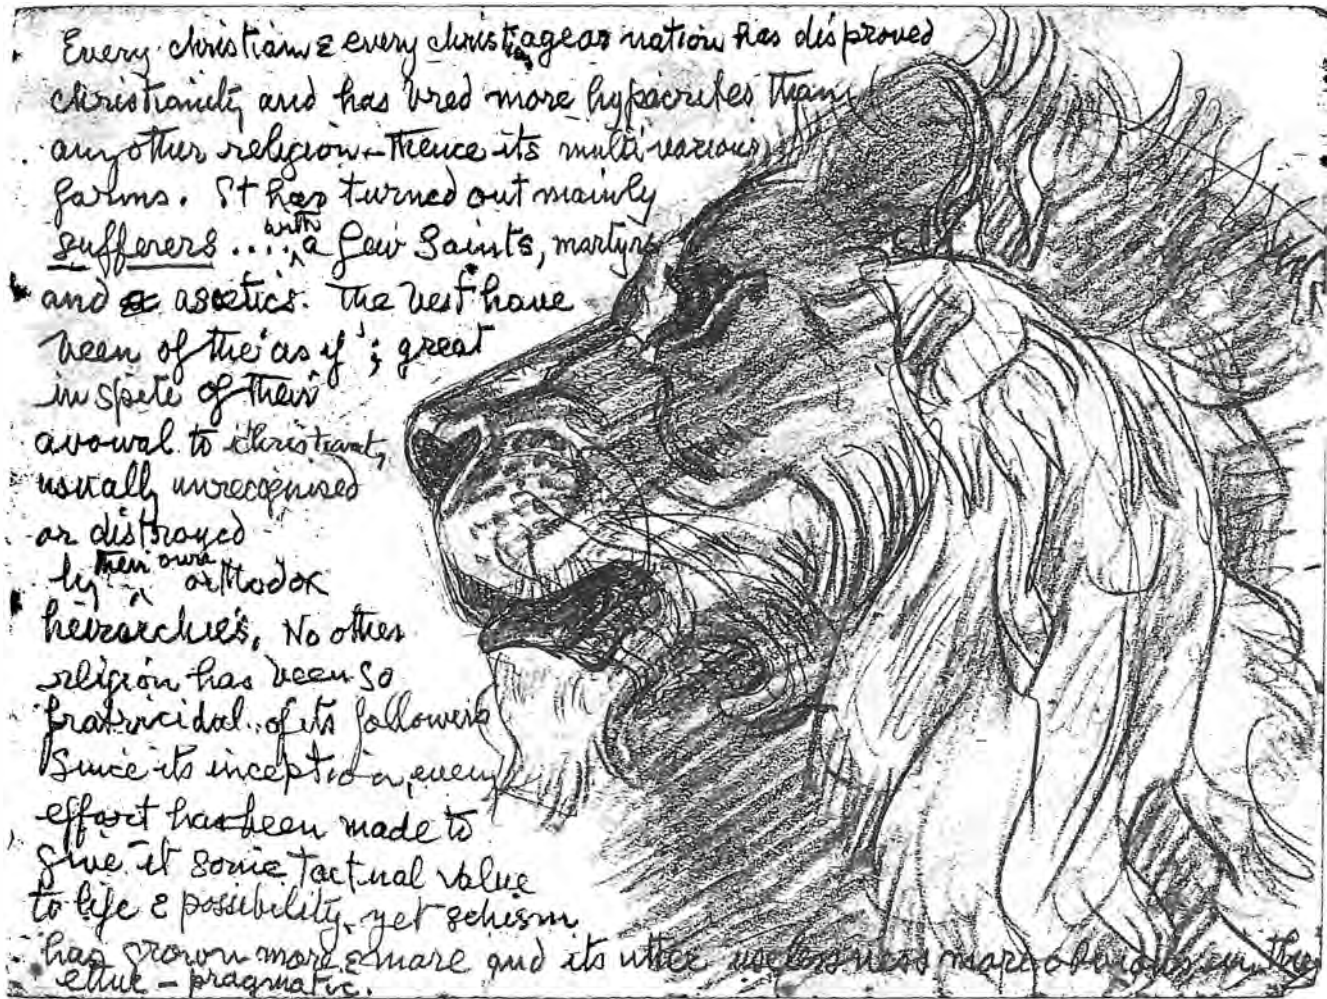 Every christian & every christian age or nation has disproved
christianity and has bred more hypocrites than
any other religion - thence its multi various
forms. It has turned out mainly
sufferers .... with a few Saints, martyrs
and ascetics. The best have
been of the 'as if'; great
in spite of their
avowal to christianity
usually unrecognised
or distroyed
by their own orthodox
heirarchies. No other
religion has been so
fratricidal of its followers
Since its inception, every
effort has been made to
give it some factual value
to life & possibility, yet schism
has grown more & more and its utter uselessness more obvious in the
- pragmatic.